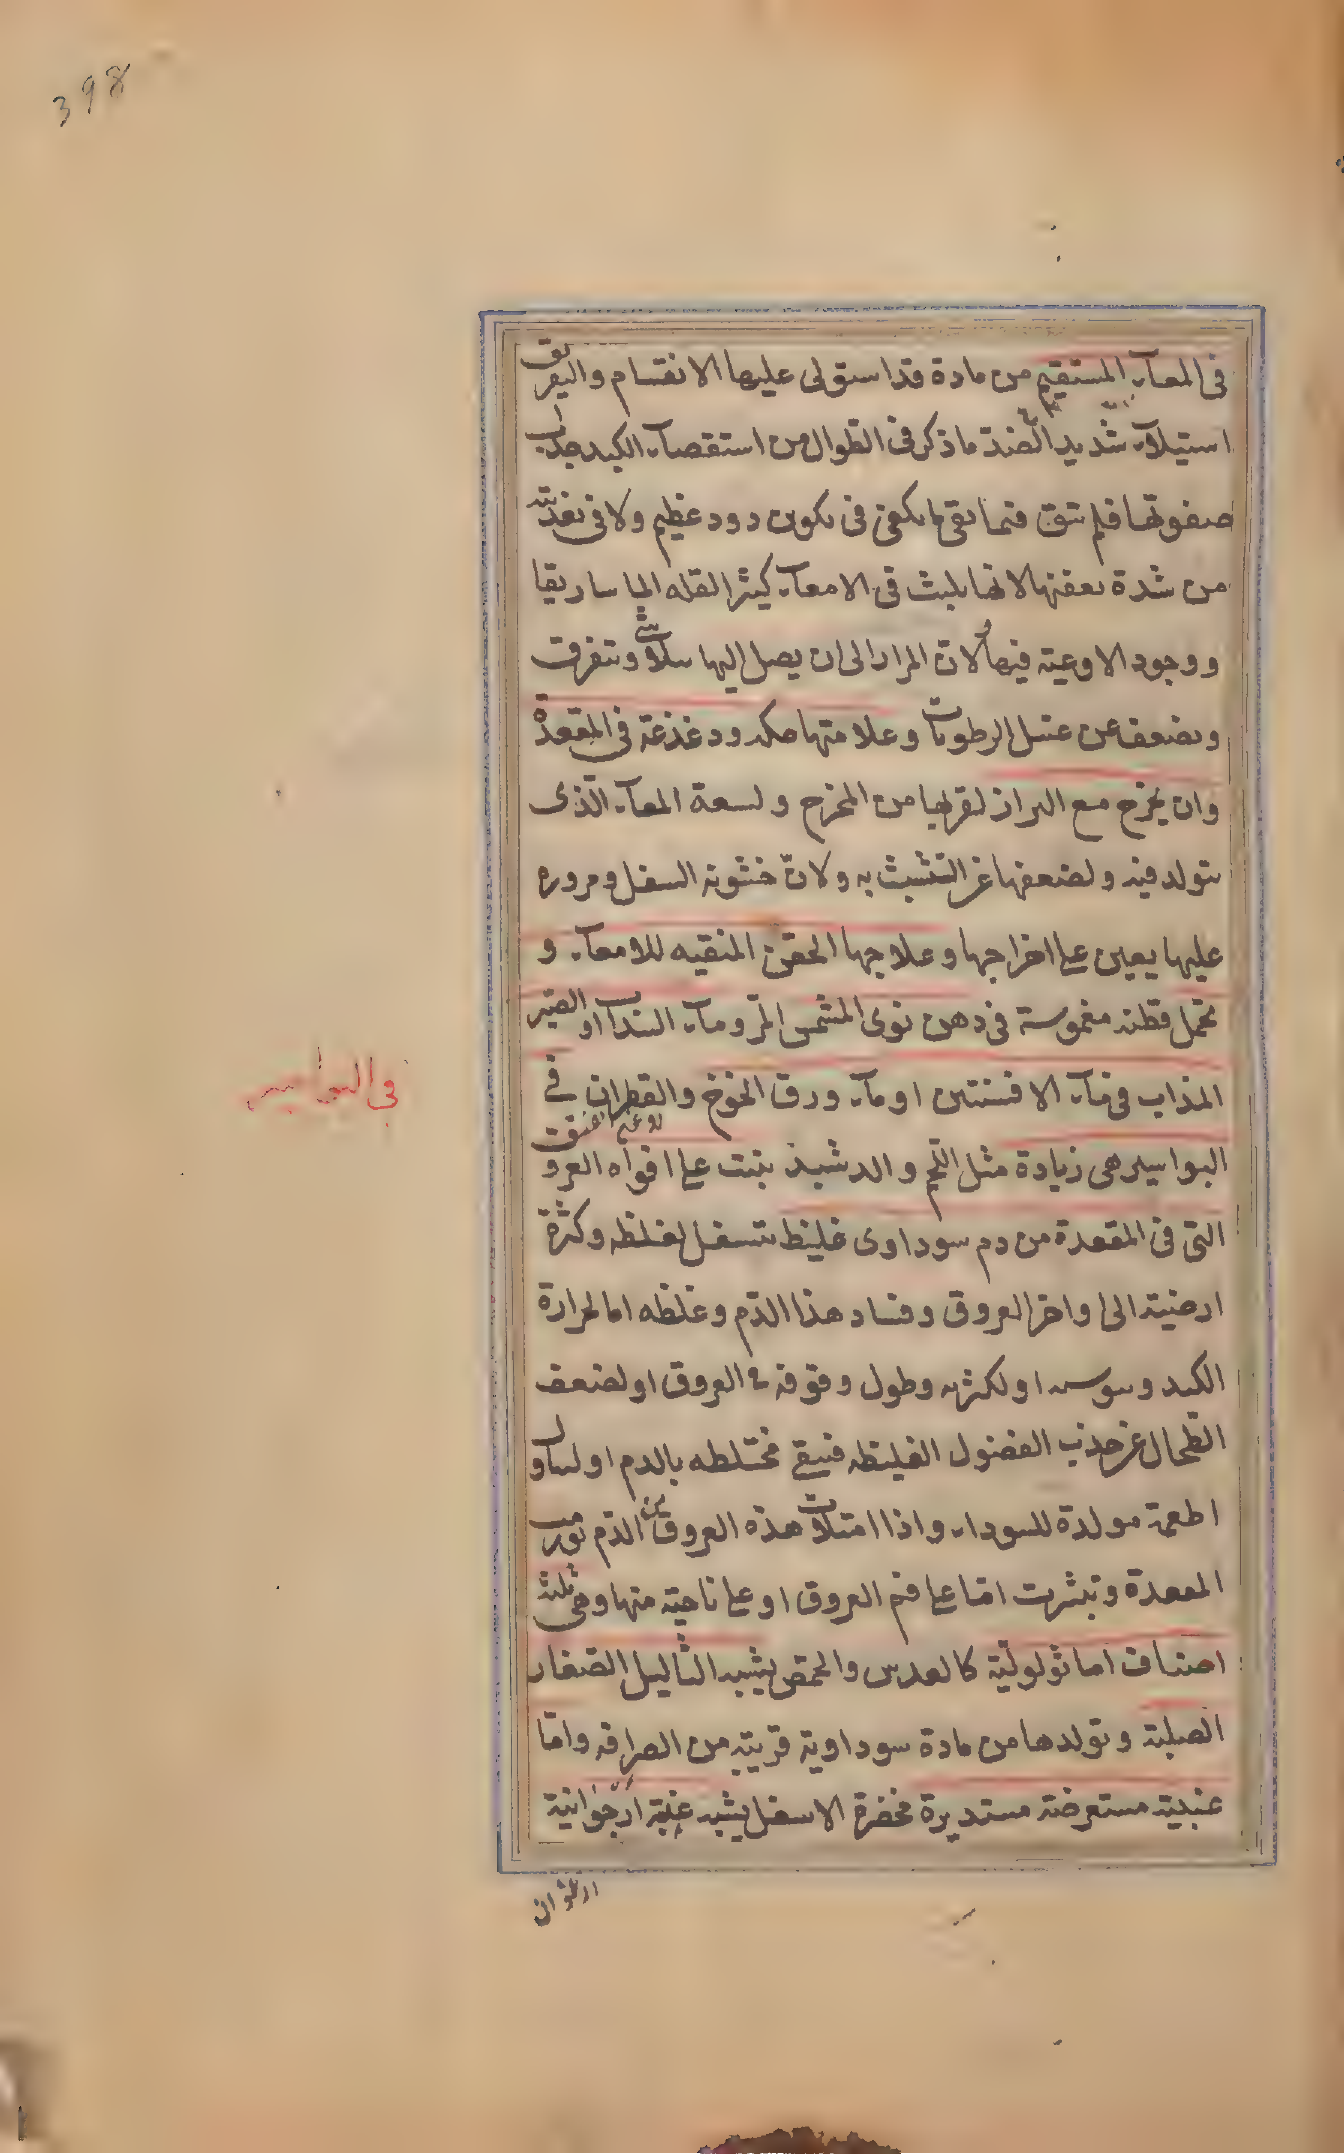 398
فى المعآء المستقيم من مادة قد استولى عليها الانقسام والتفريق
استيلآء شديد الضد ما ذكر فى الطوال من استقصآء الكبد جذاب
صفوتها فلم تبق فيما بقى ما يكفى فى تكون دود عظيم ولا فى تغذيته
من شدة تعفنها لانها يلبث فى الامعآء كثيرا لقله الماساريقا
ووجود الاوعية فيها ولان المرار الى ان يصل اليها يتلاشى ويتفرق
ويضعف عن غسل الرطوبات وعلامتها حكه ودغذغة فى المقعدة
وان يخرج مع البراز لقربها من المخرج ولسعة المعآء الّذى
يتولد فيه ولضعفها عن التشبث به ولانّ خشونه السفل ومروره
عليها يعين على اخراجها وعلاجها الحقن المنقيه للامعآء و
تحمل قطنه مغموسة فى دهن نوى المشمس المرّ ومآء السذاب او الصبر
المذاب فى مآء الافسنتين او مآء ورق الخوخ والقطران فے
البواسير هى زيادة مثل اللّحم والدشبذ ينبت على افواه العروق
التى فى المقعدة من دم سوداوى غليظ يتسفل لغلظه وكثرة
ارضيته الى اواخر العروق وفساد هذا الدّم وغلظه اما لحرارة
الكبد ويبوسته او لكثرته وطول وقوفه فے العروق او لضعف
الطّحال عن جذب الفضول الغليظه فيبقى مختلطه بالدم او لتناول
اطعمة مولدة للسودآء واذا امتلات هذه العروق من الدّم تورمت
المعقدة وتبثرت امّا على فم العروق او على ناحية منها وهى ثلثة
اصناف اما ثولوليّة كالعدس والحمّص يشبه الثاليل الصغار
الصلبة وتولدها من مادة سوداوية قريبة من الصرافه وامّا
عنبية مستعرضة مستديرة مخضرة الاسفل يشبه عنبة ارجوانية
فى البواسير
ارغوان